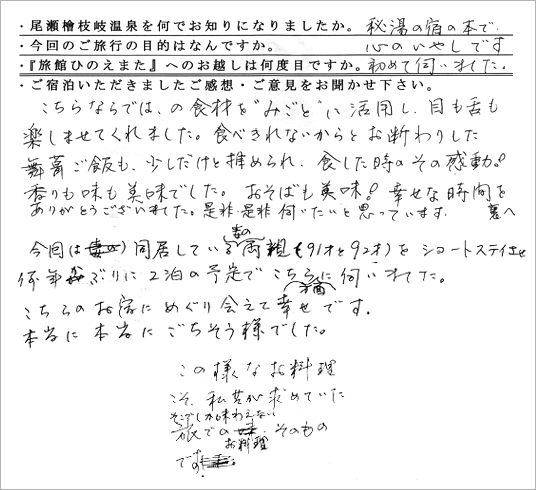 ・尾瀬檜枝岐温泉を何でお知りになりましたか。 秘湯の宿の本で、
・今回のご旅行の目的はなんですか。 心のいやしです
・『旅館ひのえまた』へのお越しは何度目ですか。 初めて伺いました。
・ご宿泊いただきましたご感想・ご意見をお聞かせ下さい。
こちらならでは、の食材を"みごと"に活用し、目も舌も
楽しませてくれました。食べきれないからとお断わりした
舞茸ご飯も、少しだけと推められ、食した時のその感動!
香りも味も美味でした。おそばも美味!幸せな時間を
ありがとうございました。是非是非伺いたいと思っています。 裏へ
妻の
今回は同居している両親(91才と92才)をショートステイさせ
何年ぶりに2泊の予定でこちらに伺いました。
こちらのお宿にめぐり会えて幸せです。
本当に本当にごちそう様でした。
この様なお料理
こそ、私共が求めていた
そこでしか味わえない
旅での そのもの
お料理
です